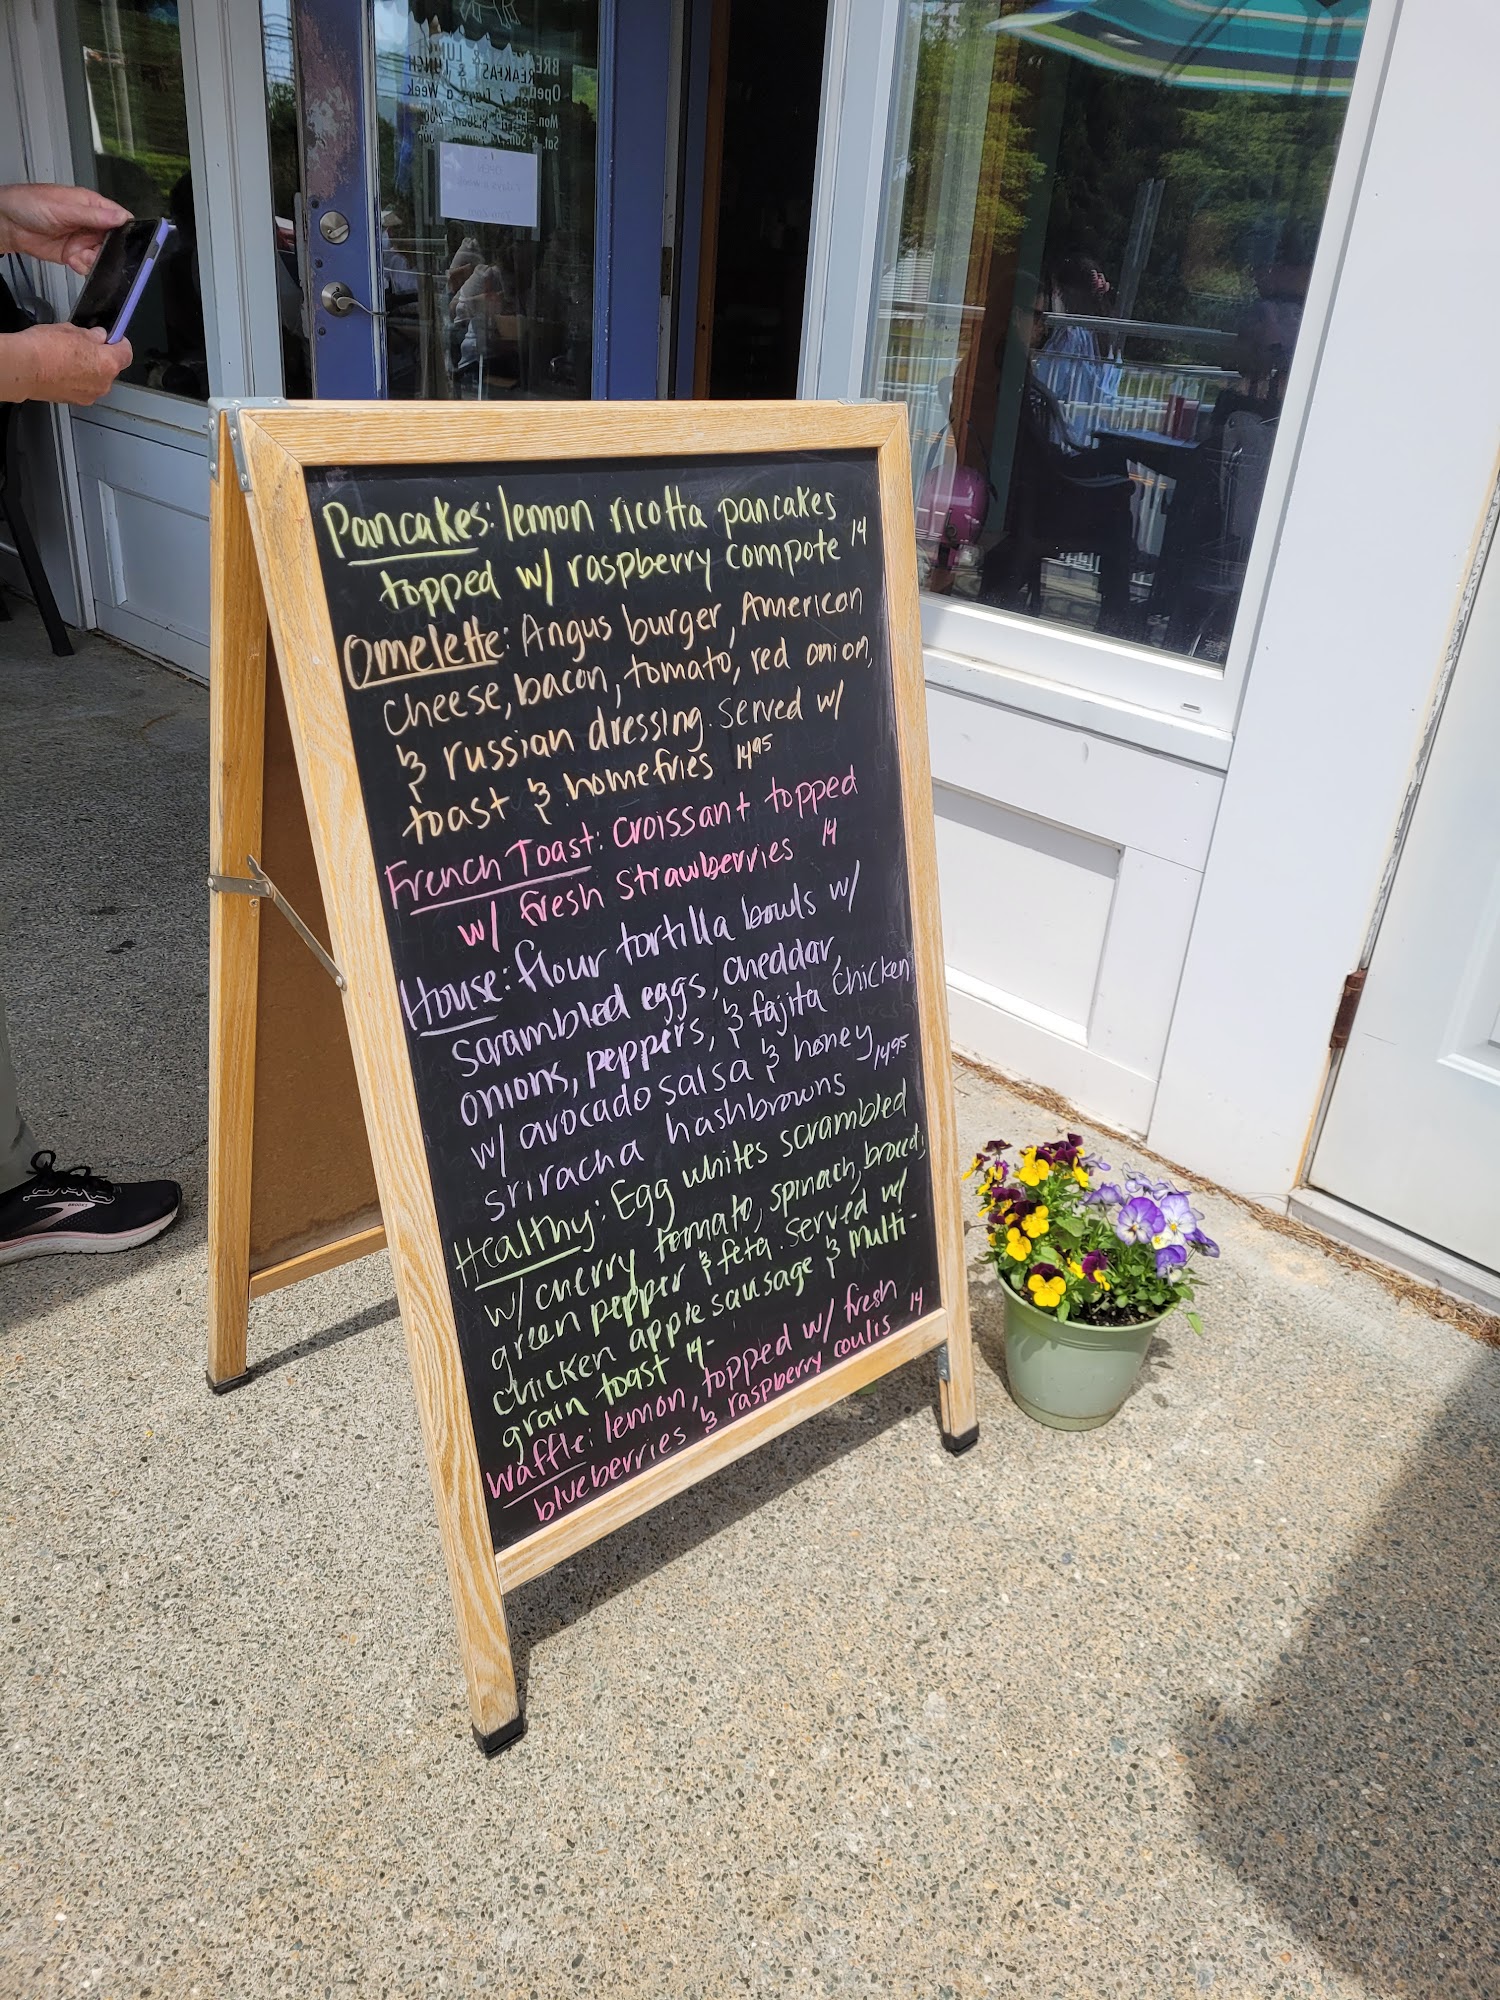 BREAKFAST & LUNCH
Open 7 Days a Week
Pancakes: lemon ricotta pancakes
topped w/ raspberry compote 14
Omelette: Angus burger, American
cheese, bacon, tomato, red onion,
& russian dressing. served w/
toast & homefries 14.95
French Toast: croissant topped
w/ fresh strawberries 14
House: flour tortilla bowls w/
scrambled eggs, cheddar,
onions, peppers, & fajita chicken
w/ avocado salsa & honey 14.95
sriracha hashbrowns
Healthy: Egg whites scrambled
w/ cherry tomato, spinach, broccoli,
green pepper & feta. served w/
chicken apple sausage & multi-
grain toast 14-
Waffle: lemon, topped w/ fresh
blueberries & raspberry coulis 14